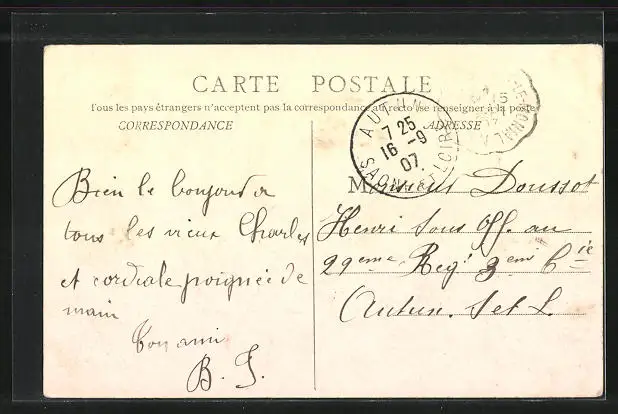 CARTE POSTALE
Tous les pays étrangers n'acceptent pas la correspondance au recto (se renseigner à la poste
CORRESPONDANCE
ADRESSE
AUTUN
7 25
16 - 9
07.
SAONE ET LOIRE
Bien le bonjour a
tous les vieux Charles
et cordiale poignée de
main
Ton ami
B. J.
Monsieur Doussot
Henri Sous Off. au
29eme Regt 3eme Cie
Autun. S et L.